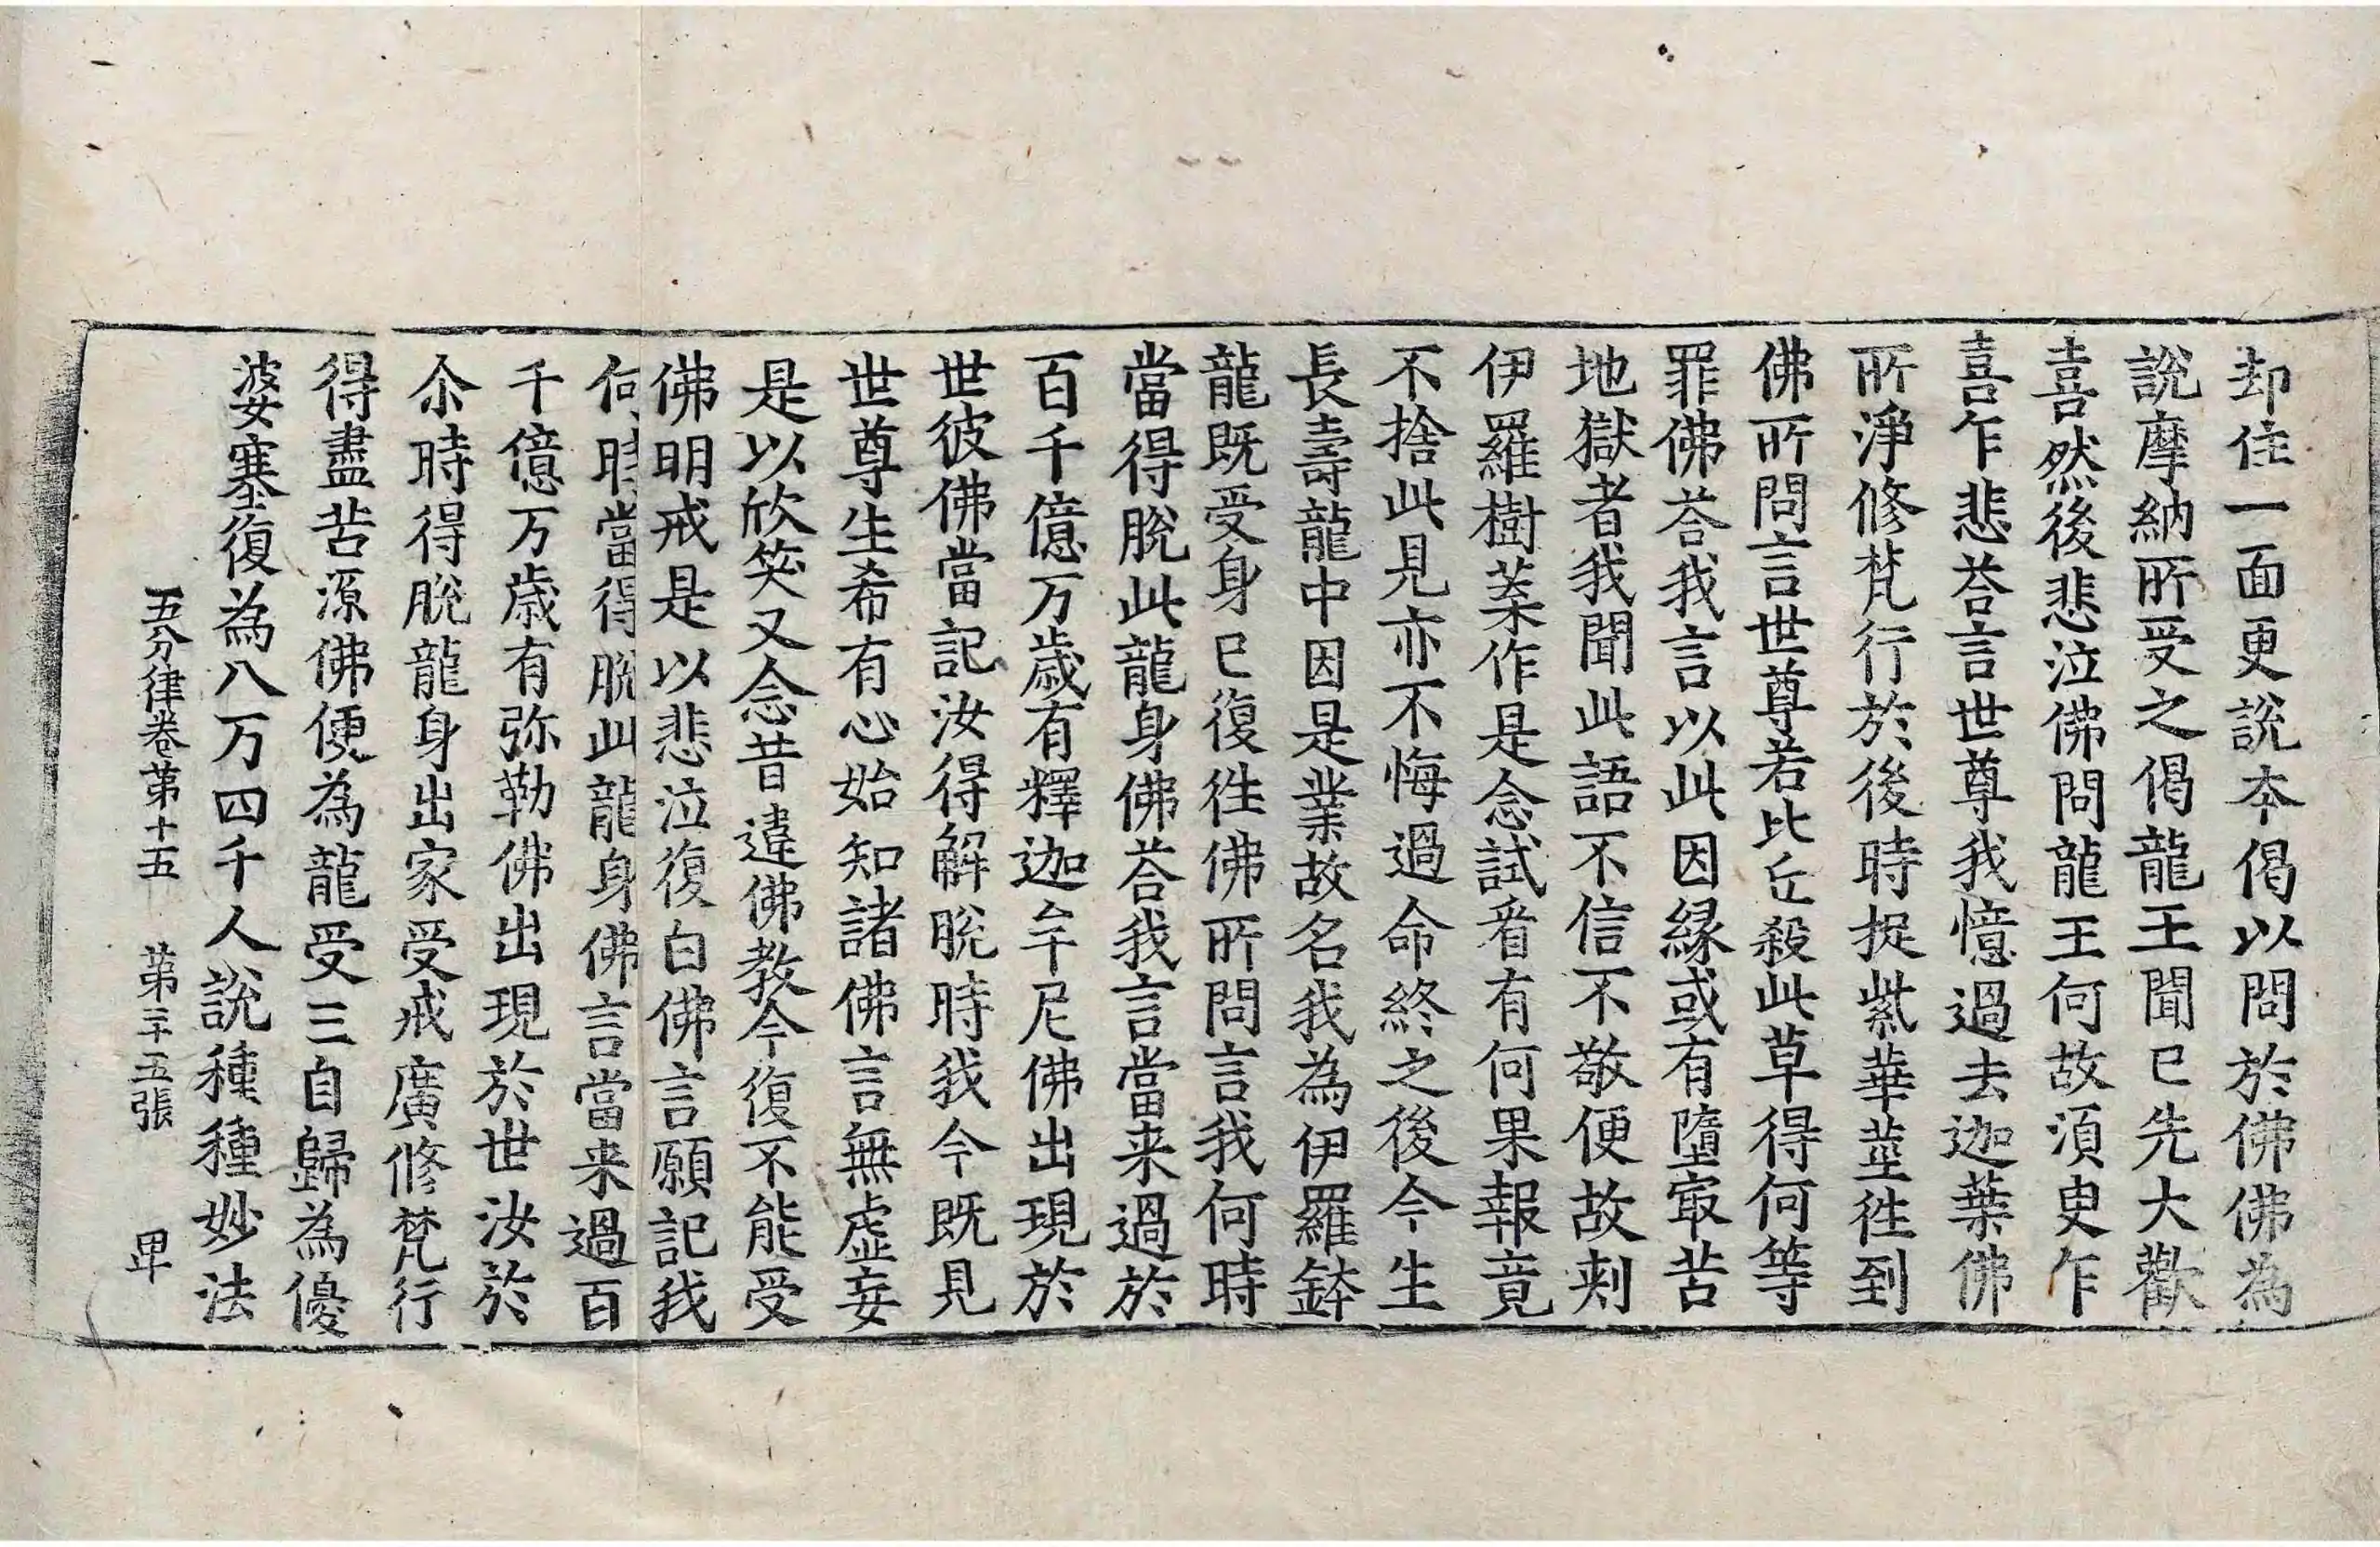 却住一面更說本偈以問於佛佛為
說摩納所受之偈龍王聞已先大歡
喜然後悲泣佛問龍王何故湏臾乍
喜乍悲荅言世尊我憶過去迦葉佛
所淨修梵行於後時捉紫華莖徃到
佛所問言世尊若比丘殺此草得何等
罪佛荅我言以此因縁或有墮㝡苦
地獄者我聞此語不信不敬便故刾
伊羅樹葉作是念試㸔有何果報竟
不捨此見亦不悔過命終之後今生
長壽龍中因是業故名我為伊羅鉢
龍既受身已復徃佛所問言我何時
當得脫此龍身佛荅我言當来過於
百千億万歳有釋迦牟尼佛出現於
世彼佛當記汝得解脫時我今既見
世尊生希有心始知諸佛言無虛妄
是以欣笑又念昔違佛教今復不能受
佛明戒是以悲泣復白佛言願記我
何時當得脫此龍身佛言當来過百
千億万歳有弥勒佛出現於世汝於
尒時得脫龍身出家受戒廣修梵行
得盡苦源佛便為龍受三自歸為優
婆塞復為八万四千人說種種妙法
五分律卷第十五　第三十五張　卑